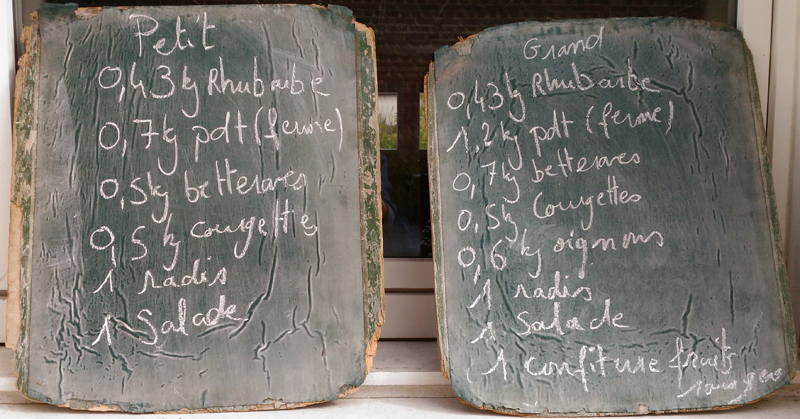 Petit
0,43kg Rhubarbe
0,7kg pdt (ferme)
0,5kg betteraves
0,5 kg courgettes
1 radis
1 Salade
Grand
0,43kg Rhubarbe
1,2kg pdt (ferme)
0,7kg betteraves
0,5kg Courgettes
0,6 kg oignons
1 radis
1 Salade
1 confiture fruits